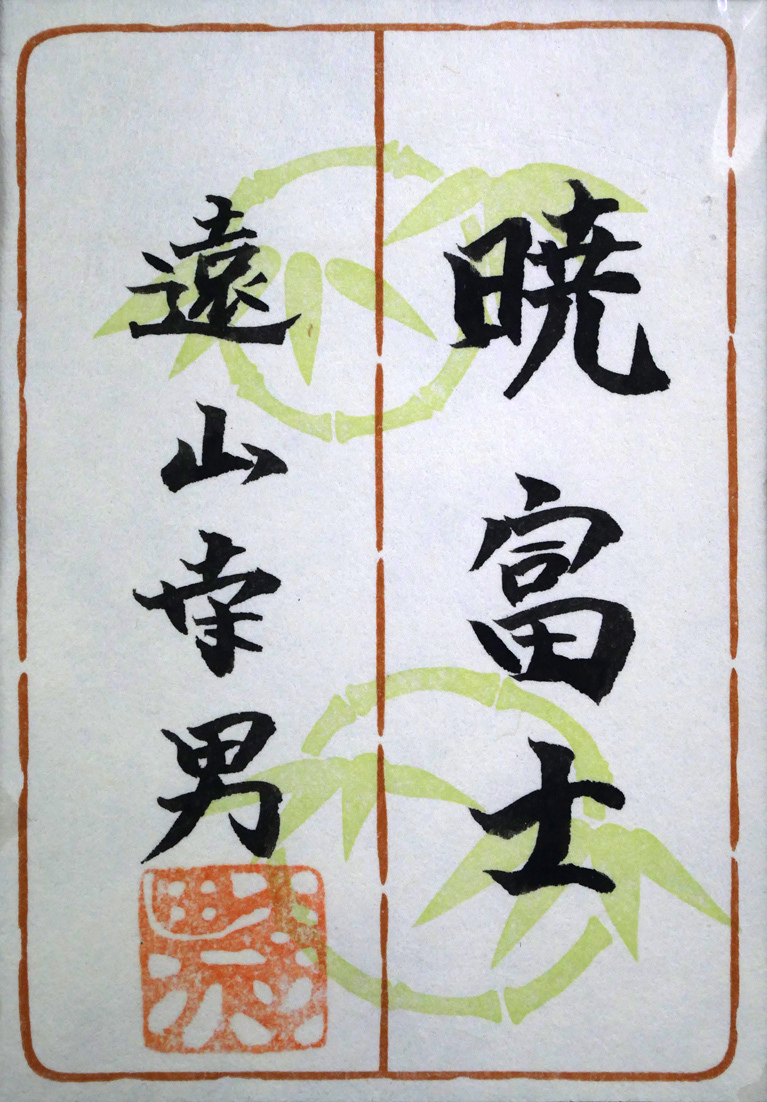 暁富士
遠山幸男